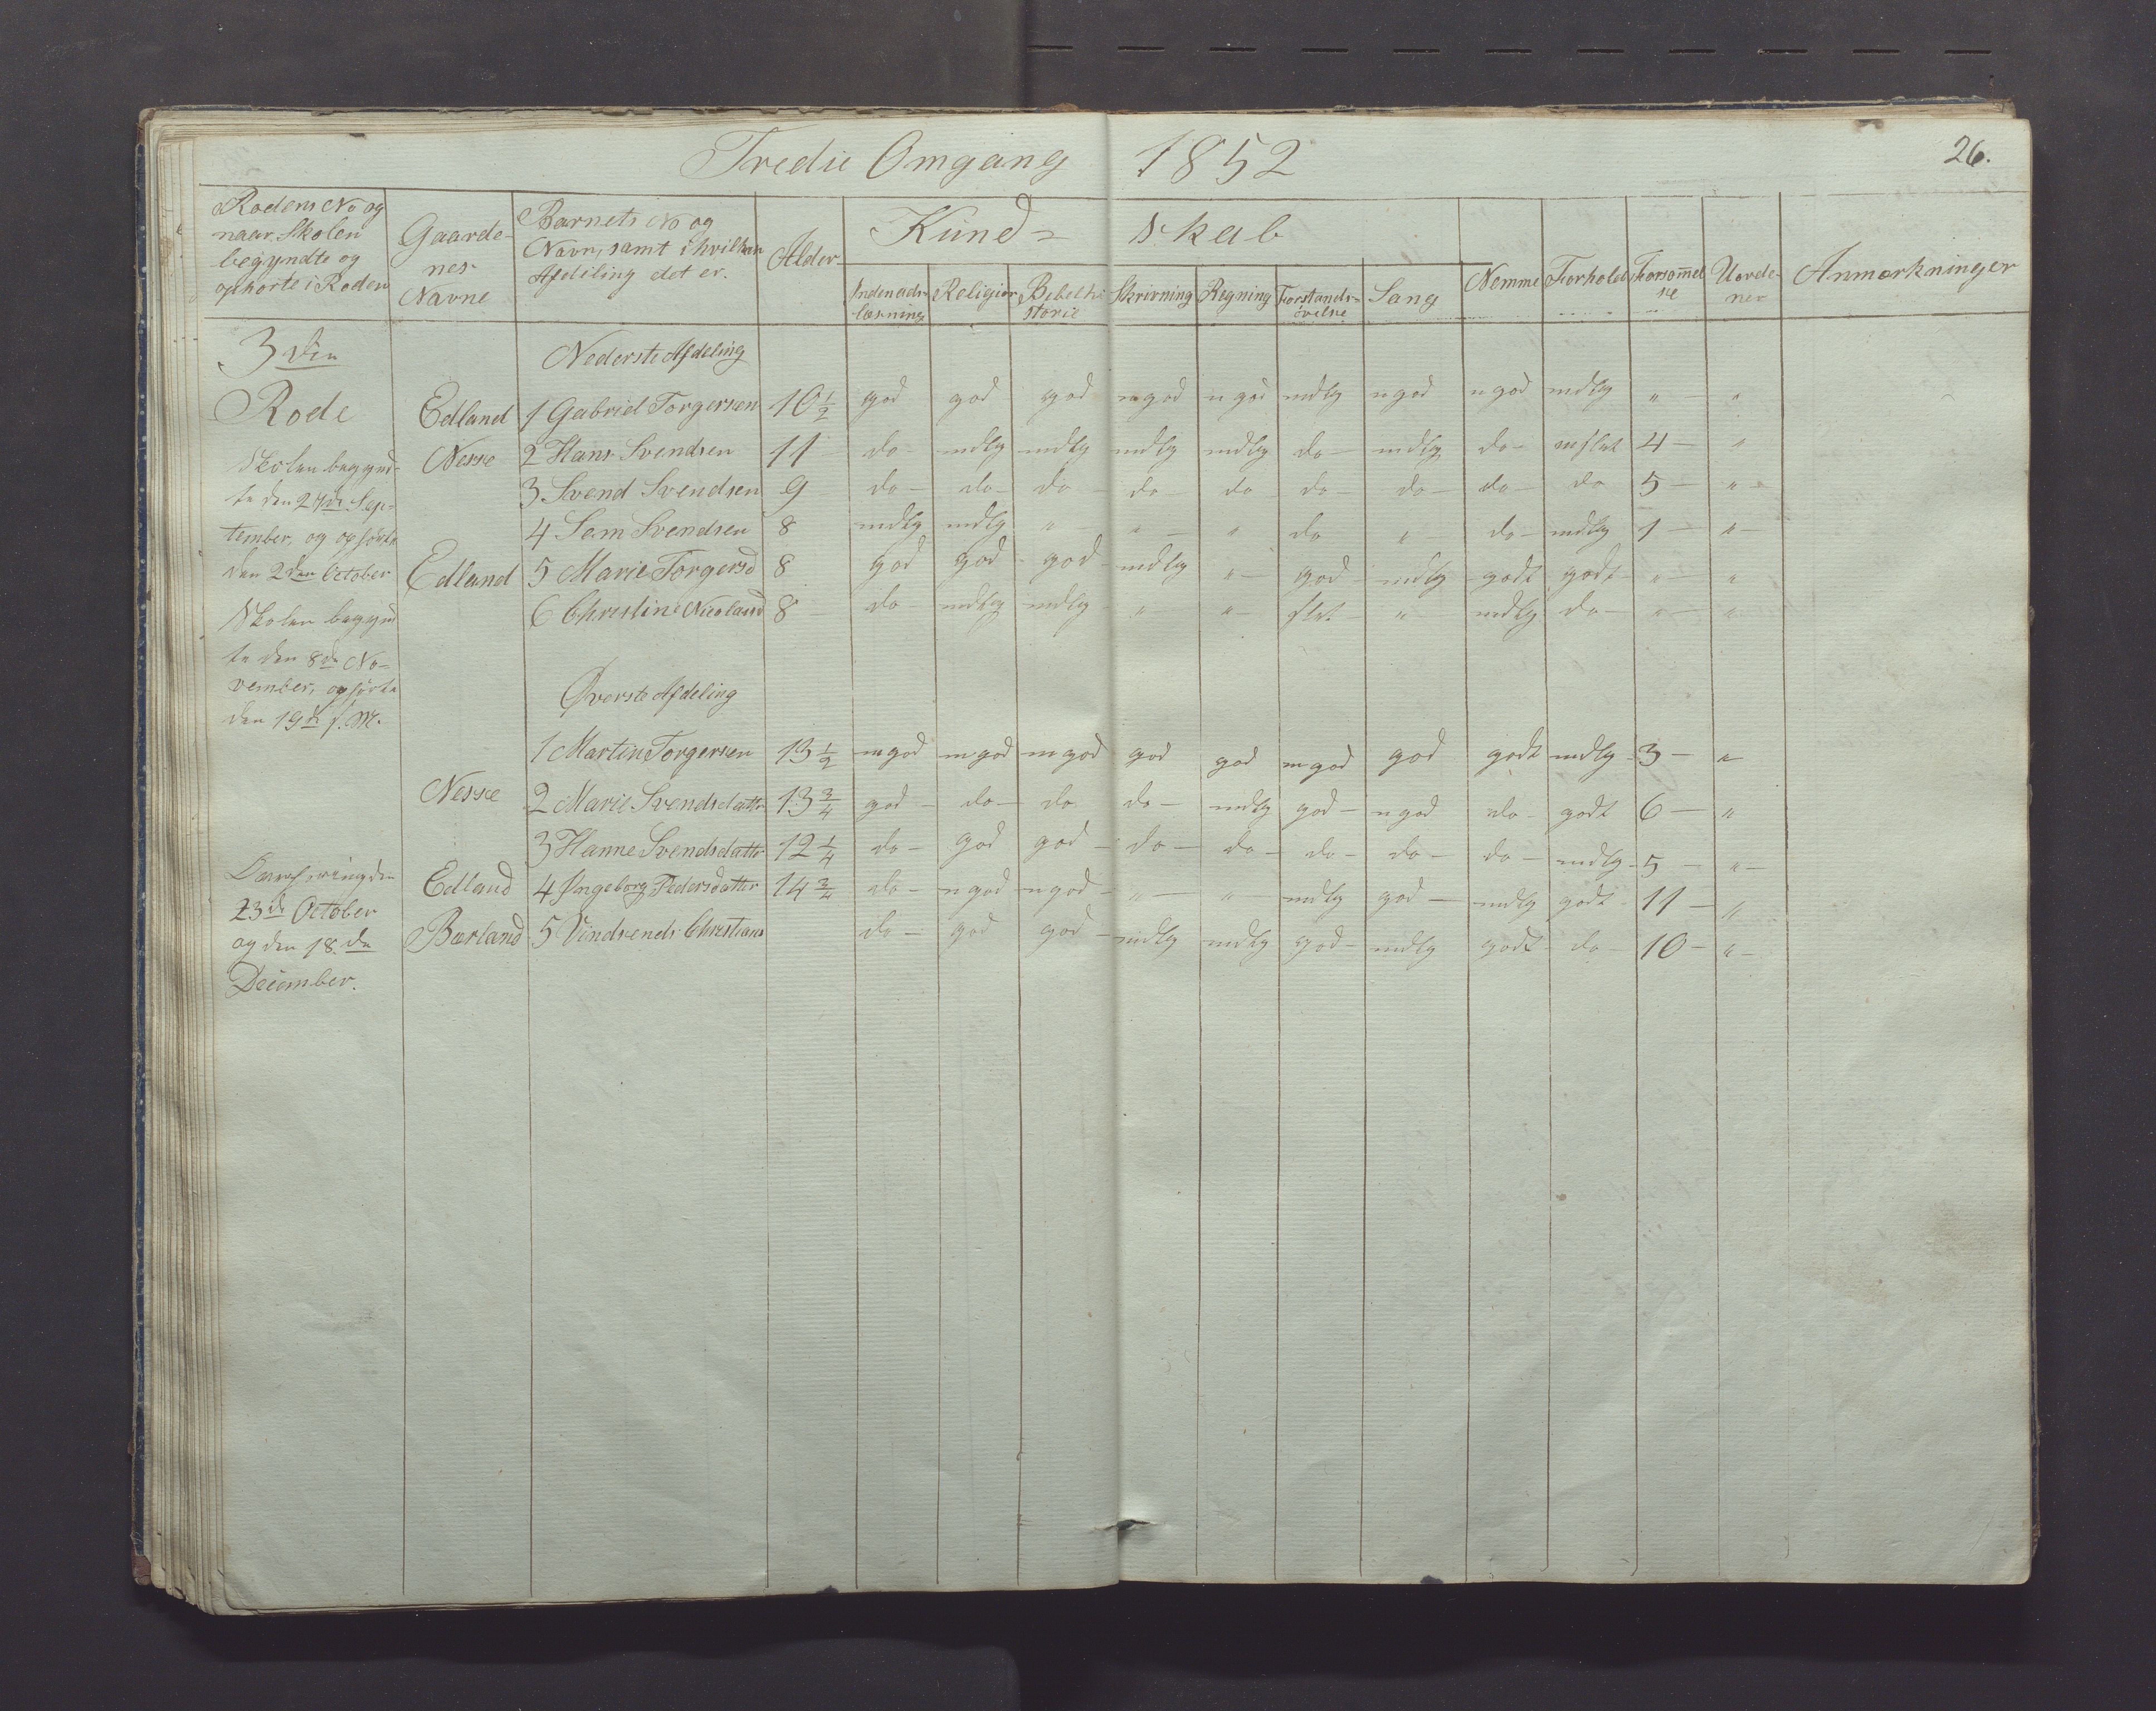 Tredie Omgang 1852
26.
Rodens No og
naar Skolen
begyndte og
ophørte i Roden
Gaarde-
nes
Navne
Barnets No og
Navn, samt i hvilken
Afdeling det er.
Alder
Kund- skab
Indenads-
læsning
Religion
Bibelhi
storie
Skrivning
Regning
Forstands-
øvelse
Sang
Nemme
Forhold
Forsømmel
se
Uorde-
ner
Anmærkninger
3die
Nederste Afdeling
Rode Edland 1 Gabriel Torgersen 10 1/2 god god god mgod ngod mdlg ngod ngod mdlg " "
Skolen begynd- Nesse 2 Hans Svendsen 11 do- mdlg mdlg mdlg mdlg do- mdlg do- 4- "
te den 27de Sep- 3 Svend Svendsen 9 do- do- do- do- do do- do- do- do 5- "-
tember, og ophørte 4 Sem Svendsen 8 mdlg mdlg " "- " do " do- mdlg 1- "-
den 2den October Edland 5 Marie Torgersd 8 god god- god- mdlg "- god- mdlg godt godt "- "
Skolen begynd 6 Christine Nicolaisd 8 do- mdlg mdlg "- "- slet- "- mdlg do- "- "
te den 8de No-
vember, ophørte Øverste Afdeling
den 19de s. M.
1 Martin Torgersen 13 1/2 mgod mgod mgod god god mgod god godt mdlg 3- "
Nesse 2 Marie Svendsdatter 13 3/4 god- do- do do- mdlg god- ngod do- godt 6- "
3 Hanne Svendsdatter 12 1/4 do- god god- do- do- do- do- do- mdlg 5- "-
den Edland 4 Ingeborg Pedersdatter 14 3/4 do- ngod ngod- "- "- mdlg god- mdlg godt 11- "
23de October
og den 18.de Bærland 5 Christians do- god god- mdlg mdlg god- mdlg godt do- 10- "-
December.